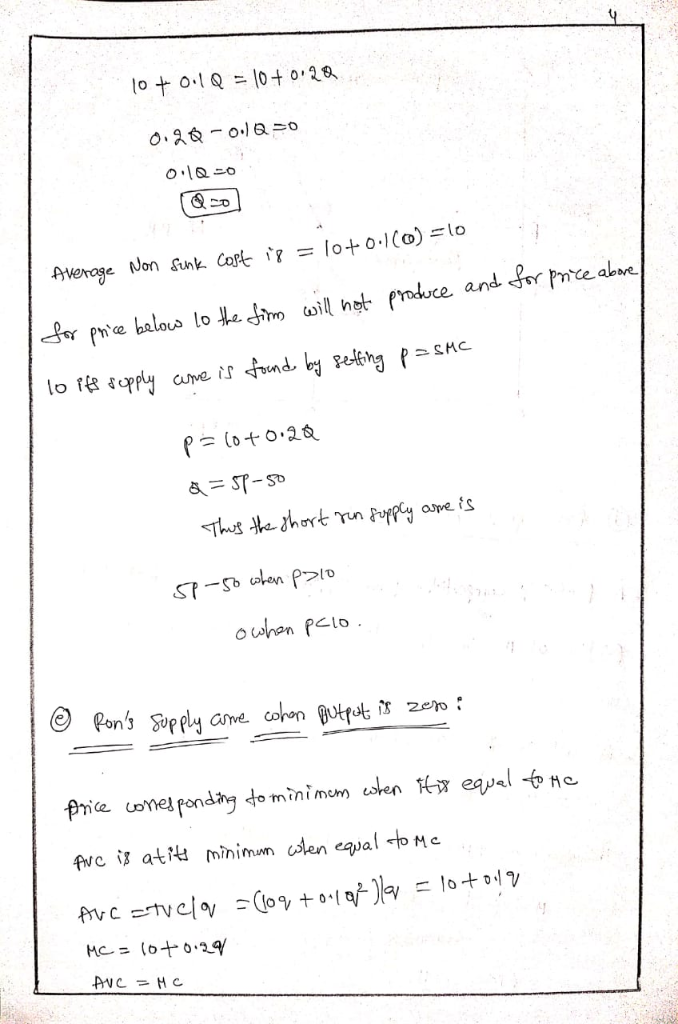 4
10 + 0.1Q = 10 + 0.2Q
0.2Q - 0.1Q = 0
0.1Q = 0
Q = 0
Average Non Sunk Cost is = 10 + 0.1(0) = 10
for price below 10 the firm will not produce and for price above
10 its supply curve is found by setting P = SMC
P = 10 + 0.2Q
Q = 5P - 50
Thus the short run supply curve is
5P - 50 when P>10
0 when P<10.
(e) Ron's Supply curve when output is zero :
Price corresponding to minimum when it is equal to MC
AVC is at its minimum when equal to MC
AVC = TVC/q = (10q + 0.1q²)/q = 10 + 0.1q
MC = 10 + 0.2q
AVC = MC